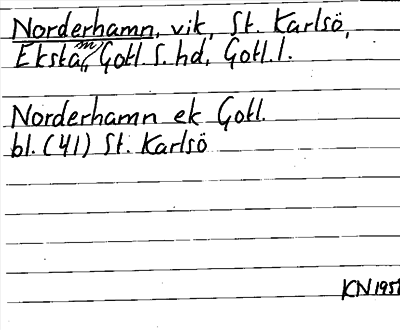 Norderhamn, vik, St. Karlsö,
Eksta sn, Gotl. S. hd, Gotl. l.
Norderhamn ek Gotl.
bl. (41) St. Karlsö
KN 1951